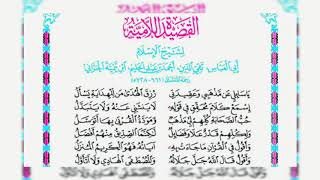 القصيدة اللامية
لشيخ الإسلام
أبي العباس، تقي الدين، أحمد بن عبد الحليم، ابن تيمية الحراني
يا سائلي عن مذهبي وعقيدتي رزق الهدى من للهداية يسأل
اسمع كلام محقق في قوله لا ينثني عنه ولا يتبدل
حب الصحابة كلهم لي مذهب ومودة القربى بها أتوسل
ولكلهم قدر علا وفضائل لكنما الصديق منهم أفضل
وأقول في القرآن ما جاءت به
وأقول قال الله جل جلاله والمصطفى الهادي ولا أتأول